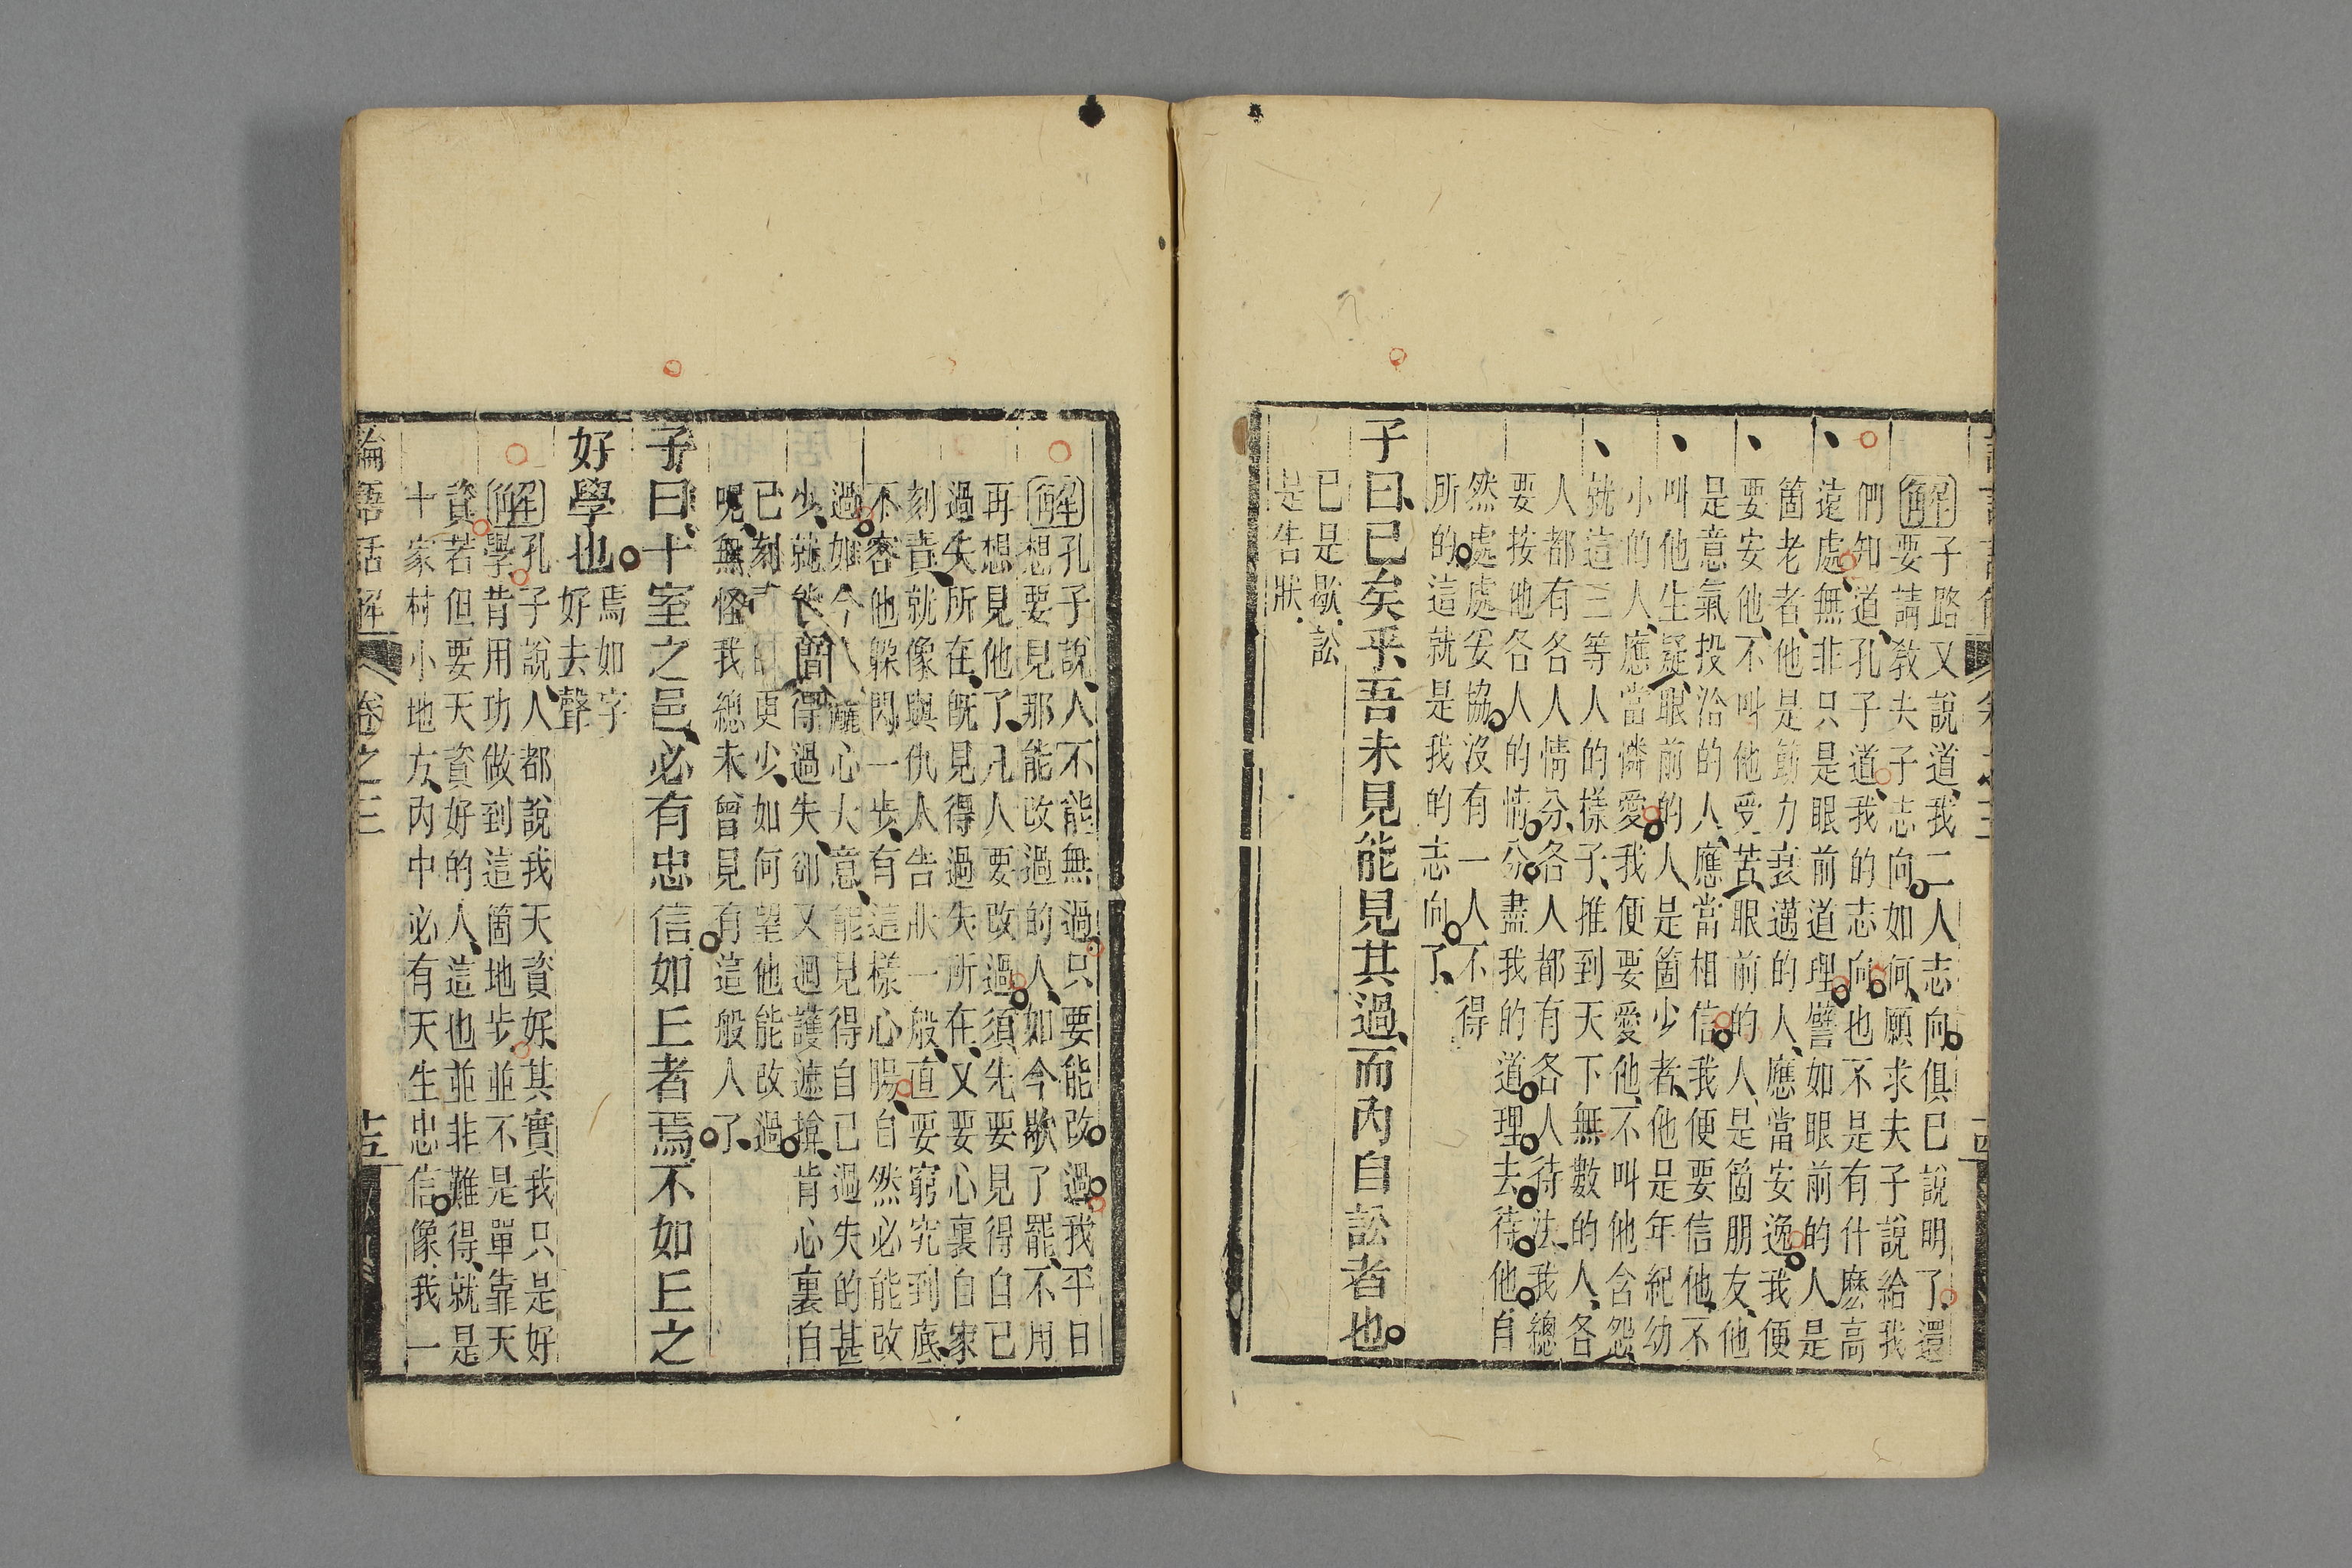 解子路又說道、我二人志向、俱已說明了、還
要請教夫子志向如何、願求夫子說給我
們知道、孔子道、我的志向也不是有什麽高
遠處、無非只是眼前道理、譬如眼前的人、是
箇老者、他是筋力衰邁的人、應當安逸、我便
要安他、不叫他受苦、眼前的人、是箇朋友、他
是意氣投洽的人、應當相信、我便要信他、不
叫他生疑、眼前的人、是箇少者、他是年紀幼
小的人、應當憐愛、我便要愛他、不叫他含怨、
就這三等人的樣子、推到天下無數的人、各
人都有各人情分、各人都有各人待法、我總
要按他各人的情分、盡我的道理去待他、自
然處處安協、沒有一人不得
所的、這就是我的志向了、
子曰、已矣乎、吾未見能見其過、而內自訟者也
已是歇、訟
是告狀、
解孔子說、人不能無過、只要能改過、我平日
想要見那能改過的人、如今歇了罷、不用
再想見他了、凡人要改過、須先要見得自己
過失所在、旣見得過失所在、又要心裏自家
刻責、就像與仇人告狀一般、直要窮究到底、
不容他躲閃一步、有這樣心腸、自然必能改
過、如今人、麤心大意、能見得自己過失的甚
少、就能簡得過失、卻又廻護遮揜、肯心裏自
已刻責的更少、如何望他能改過
呢、無怪我總未曾見有這般人了、
子曰、十室之邑、必有忠信如丘者焉、不如丘之
好學也
焉如字
好去聲
解孔子說、人都說我天資好、其實我只是好
學、昔用功做到這箇地步、並不是單靠天
資、若但要天資好的人、這也並非難得、就是
十家村小地方、內中必有天生忠信、像我一
論語話解 卷之三 十五